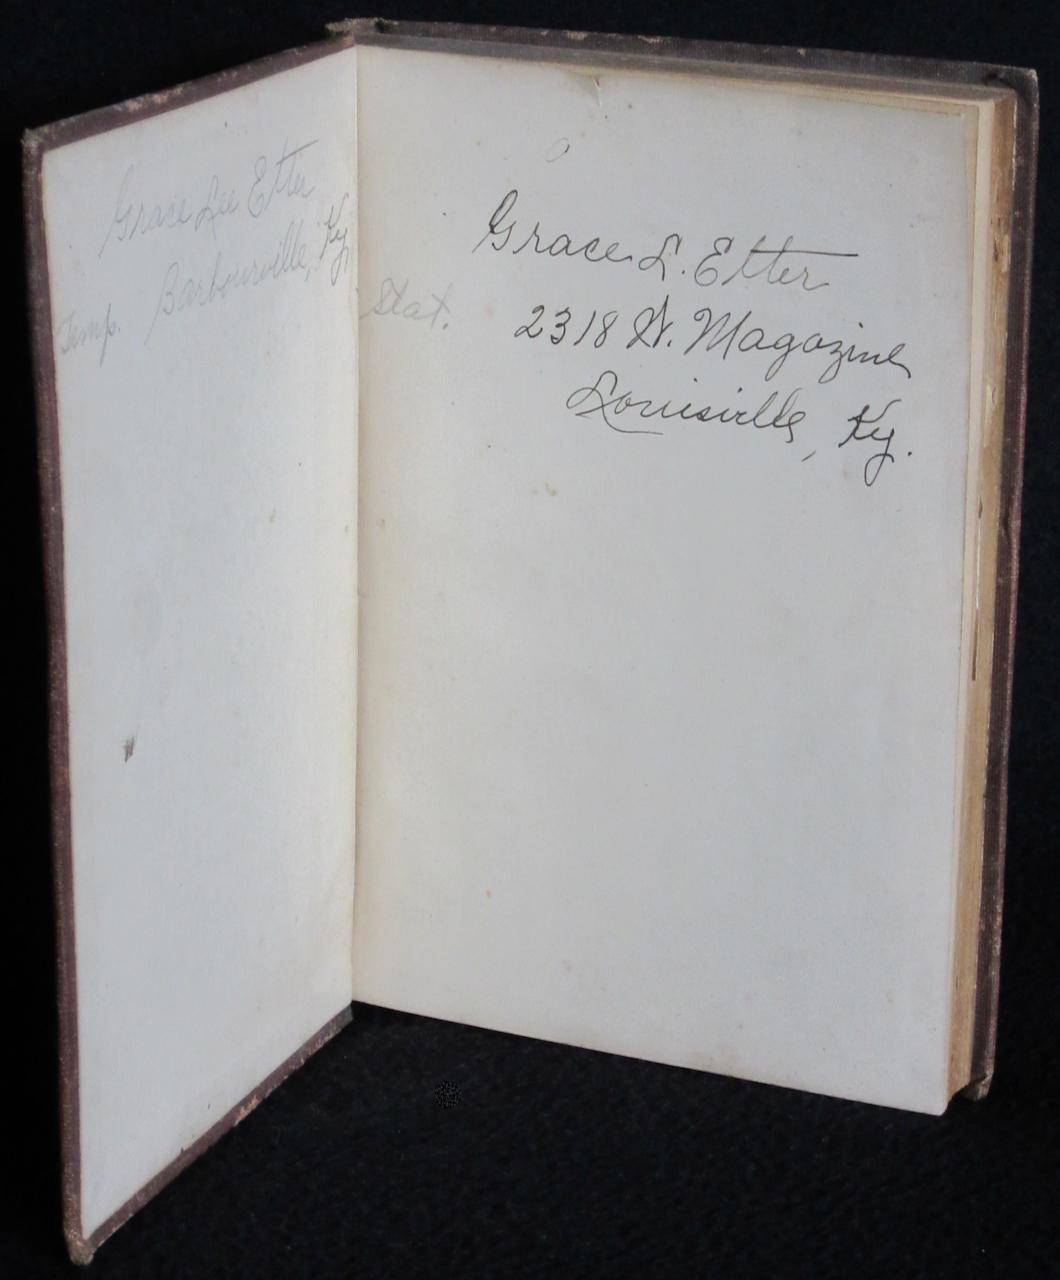 Grace Lee Etter
Barbourville, Ky.
Temp.
Grace L. Etter
Stat.
2318 W. Magazine
Louisville, Ky.